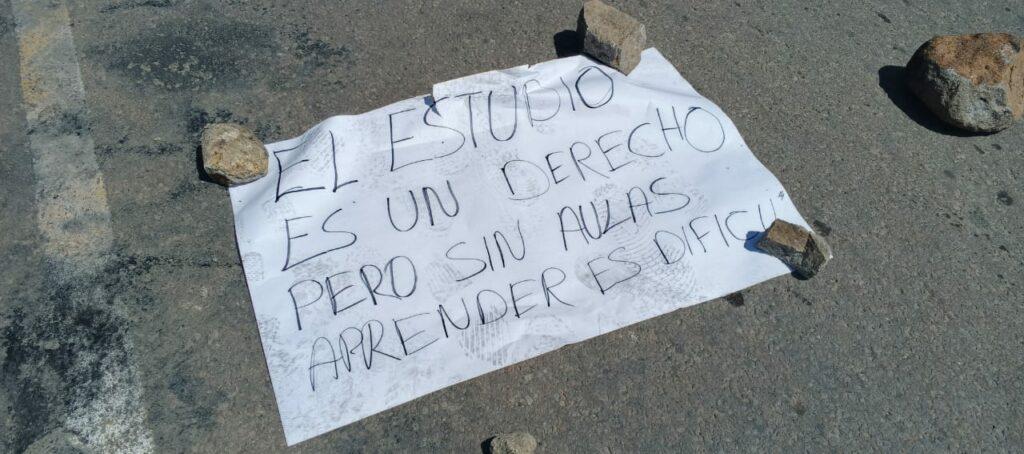 EL ESTUDIO
ES UN DERECHO
PERO SIN AULAS
APRENDER ES DIFICIL